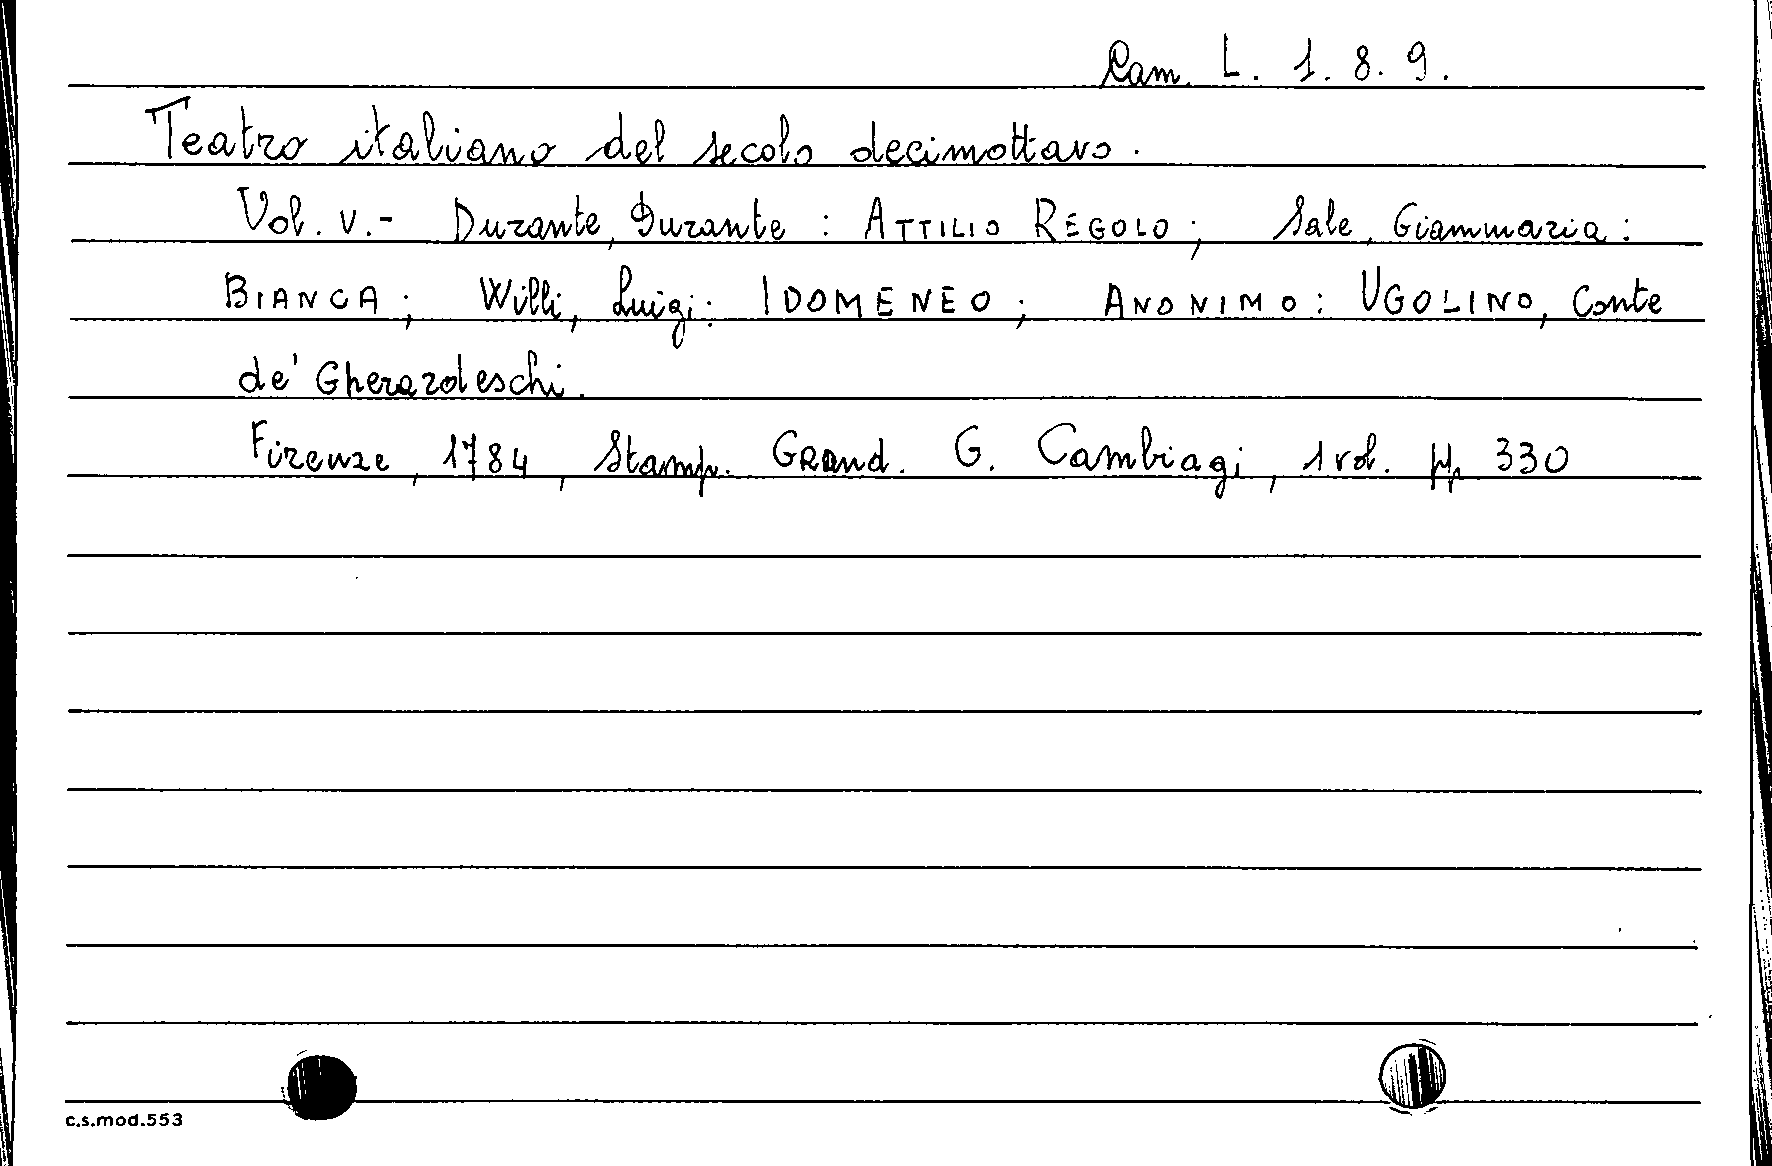 Ram. L. 1. 8. 9.
Teatro italiano del secolo decimottavo.
Vol. V.- Durante, Durante : ATTILIO REGOLO; Sale, Giammaria:
BIANCA; Willi, Luigi: IDOMENEO; ANONIMO: UGOLINO, Conte
de' Gherardeschi.
Firenze, 1784, Stamp. Grand. G. Cambiagi, 1 vol. pp 330
c.s.mod.553